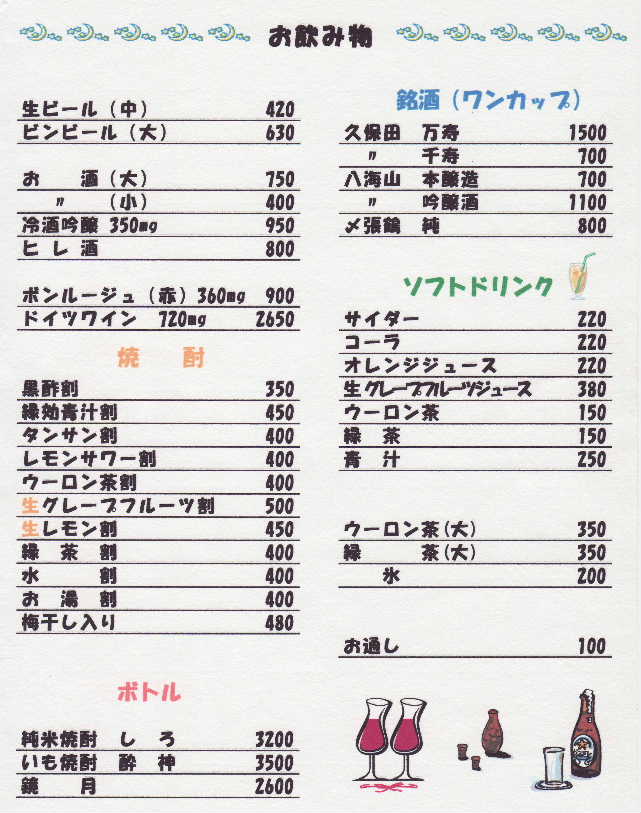 お飲み物
生ビール（中） 420
ビンビール（大） 630
お　酒（大） 750
〃　（小） 400
冷酒吟醸 350mg 950
ヒレ酒 800
ボンルージュ（赤）360mg 900
ドイツワイン 720mg 2650
焼　酎
黒酢割 350
緑効青汁割 450
タンサン割 400
レモンサワー割 400
ウーロン茶割 400
生グレープフルーツ割 500
生レモン割 450
緑　茶　割 400
水　　　割 400
お　湯　割 400
梅干し入り 480
ボトル
純米焼酎　し　ろ 3200
いも焼酎　酔　神 3500
鏡　　月 2600
銘酒（ワンカップ）
久保田　万寿 1500
〃　千寿 700
八海山　本醸造 700
〃　吟醸酒 1100
〆張鶴　純 800
ソフトドリンク
サイダー 220
コーラ 220
オレンジジュース 220
生グレープフルーツジュース 380
ウーロン茶 150
緑　茶 150
青　汁 250
ウーロン茶(大) 350
緑　　茶(大) 350
氷 200
お通し 100